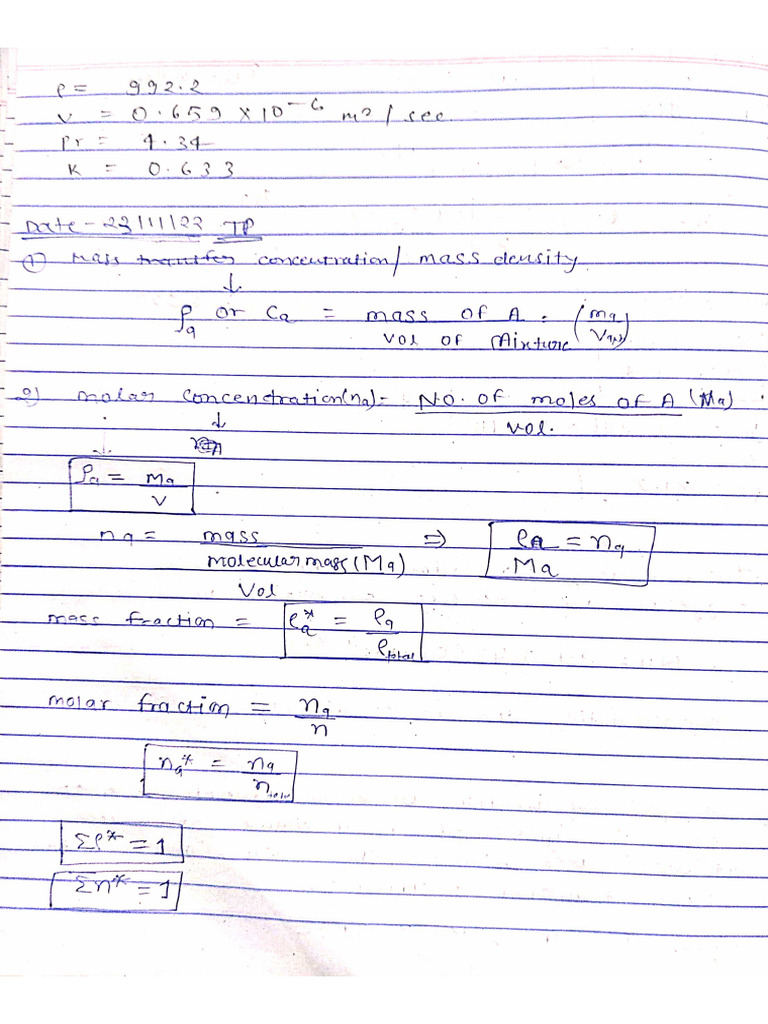 ρ = 992.2
ν = 0.659 × 10⁻⁶ m²/sec.
Pr = 4.34
K = 0.633
Date - 23/11/22 TP
① Mass transfer concentration/ mass density
↓
ρa or Ca = mass of A / vol of Mixture. (ma/V)
2) molar concenctration(na) = NO. of moles of A (Ma) / vol.
↓
ρa = Ma / V
na = mass / molecular mass (Ma) / Vol ⇒ ρA / Ma = na
mass fraction = ρa* = ρa / ρtotal
molar fraction = na / n
na* = na / ntotal
Σρ* = 1
Σn* = 1